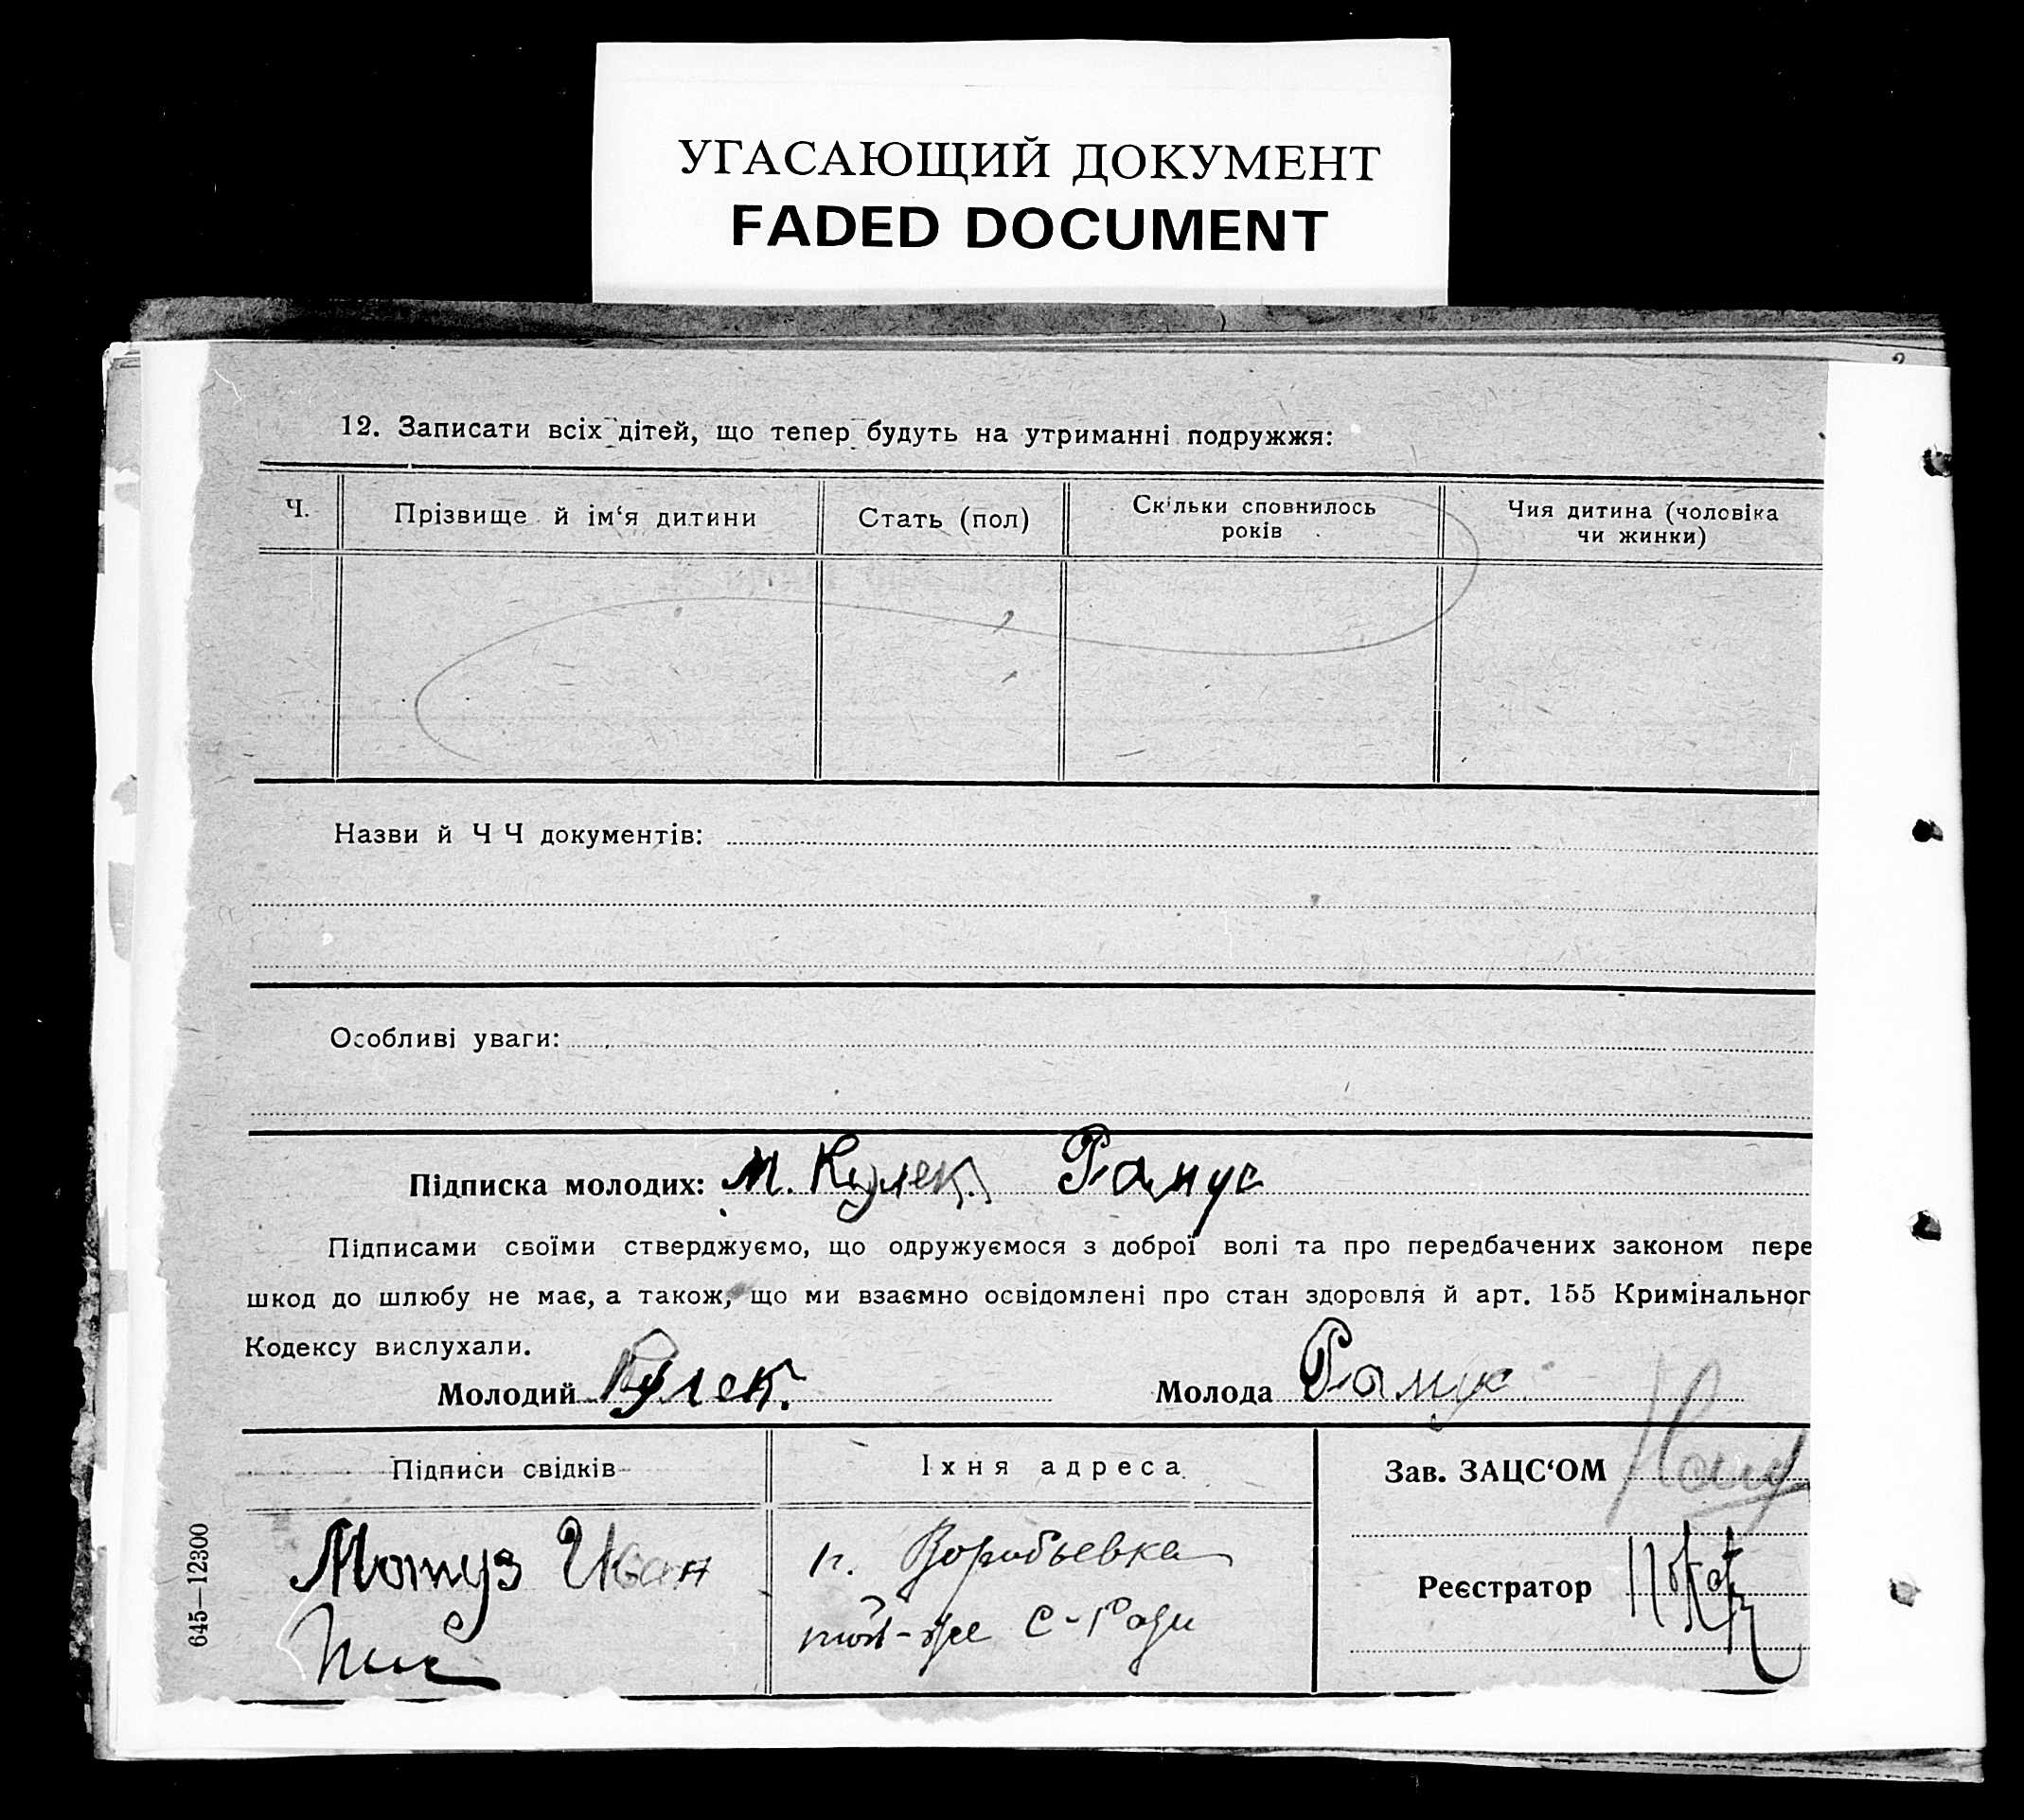 УГАСАЮЩИЙ ДОКУМЕНТ
FADED DOCUMENT
12. Записати всіх дітей, що тепер будуть на утриманні подружжя:
Ч.
Прізвище й ім‘я дитини
Стать (пол)
Скільки сповнилось
років
Чия дитина (чоловіка
чи жинки)
Назви й Ч Ч документів:
Особливі уваги:
Підписка молодих: М. Кулек
Підписами своїми стверджуємо, що одружуємося з доброї волі та про передбачених законом пере
шкод до шлюбу не має, а також, що ми взаємно освідомлені про стан здоровля й арт. 155 Кримінальног
Кодексу вислухали.
Молодий Кулек.
Молода
Підписи свідків
Матуз Иван
Іхня адреса
Воробьевка
Зав. ЗАЦС‘ОМ
Реєстратор
645—12300